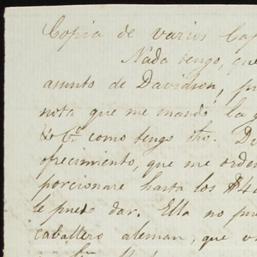 Copia de varios Cap
Nada tengo, que
asunto de Davidson, p
nota que me mandó la
& Cª como tengo dho. De
ofrecimiento, que me orde
porcionare hasta los $40
le puedo dar. Ella no pu
caballero aleman, que v